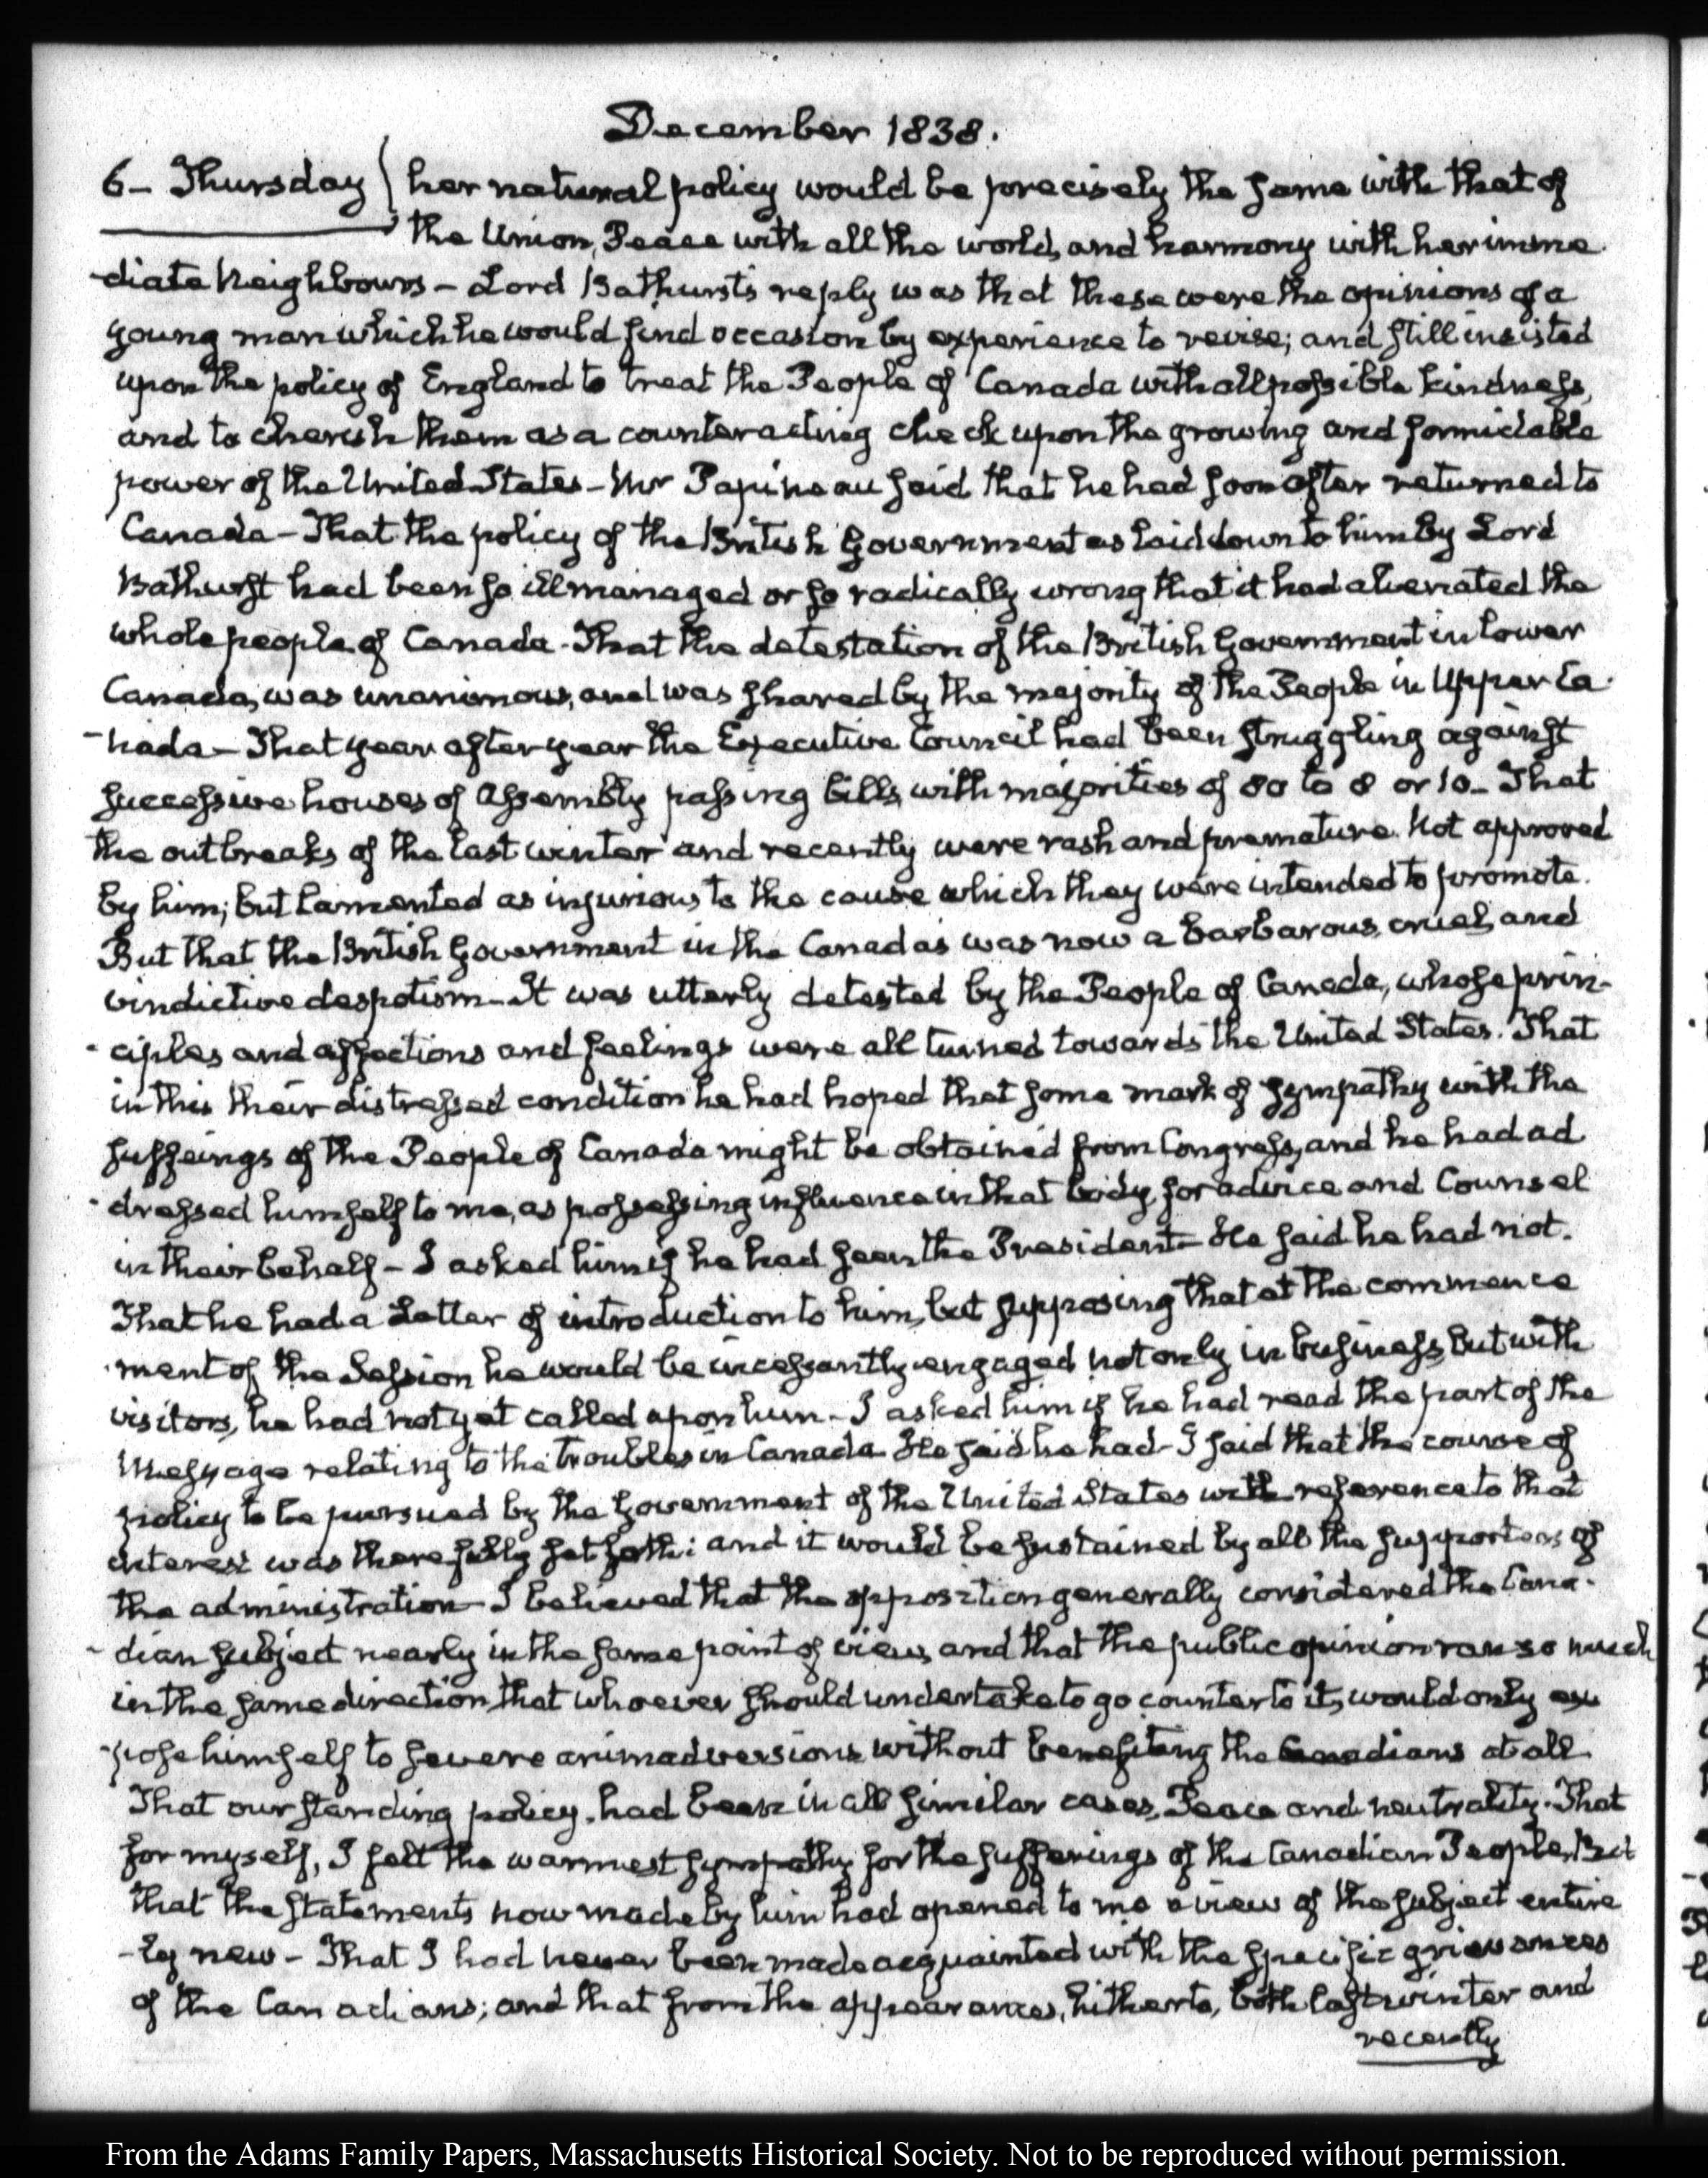 December 1838.
6 - Thursday } her natural policy would be precisely the same with that of
the Union, Peace with all the world, and harmony with her imme
-diate Neighbours - Lord Bathurst's reply was that these were the opinions of a
young man which he would find occasion by experience to revise; and still insisted
upon the policy of England to treat the People of Canada with all possible kindness,
and to cherish them as a counteracting check upon the growing and formidable
power of the United States - Mr Papineau said that he had soon after returned to
Canada - That the policy of the British Government as laid down to him by Lord
Bathurst had been so ill managed or so radically wrong that it had alienated the
whole people of Canada - That the detestation of the British Government in Lower
Canada, was unanimous, and was shared by the majority of the People in Upper Ca-
-nada - That year after year the Executive Council had been struggling against
successive houses of Assembly passing bills, with majorities of 80 to 8 or 10 - That
the outbreaks of the last winter and recently were rash and premature. Not approved
by him; but lamented as injurious to the cause which they were intended to promote.
But that the British Government in the Canadas was now a barbarous, cruel, and
vindictive despotism - It was utterly detested by the People of Canada, whose prin-
-ciples and affections and feelings were all turned towards the United States. That
in this their distressed condition he had hoped that some mark of sympathy with the
suffeings of the People of Canada might be obtained from Congress, and he had ad
-dressed himself to me, as possessing influence in that body, for advice and Counsel
in their behalf - I asked him if he had seen the President - He said he had not.
That he had a Letter of introduction to him, but supposing that at the commence
-ment of the Session he would be incessantly engaged not only in business, but with
visitors, he had not yet called upon him - I asked him if he had read the part of the
Message relating to the troubles in Canada - He said he had - I said that the course of
policy to be pursued by the Government of the United States with reference to that
interest was there fully set forth: and it would be sustained by all the supporters of
the administration - I believed that the opposition generally considered the Cana-
-dian subject nearly in the same point of view, and that the public opinion ran so much
in the same direction, that whoever should undertake to go counter to it, would only ex
-pose himself to severe animadversions without benefiting the Canadians at all.
That our standing policy, had been in all similar cases, Peace and neutrality. That
for myself, I felt the warmest sympathy for the sufferings of the Canadian People, But
that the statements now made by him had opened to me a view of the subject entire
-ly new - That I had never been made acquainted with the specific grievances
of the Canadians; and that from the appearances, hitherto, both last winter and
recently
From the Adams Family Papers, Massachusetts Historical Society. Not to be reproduced without permission.